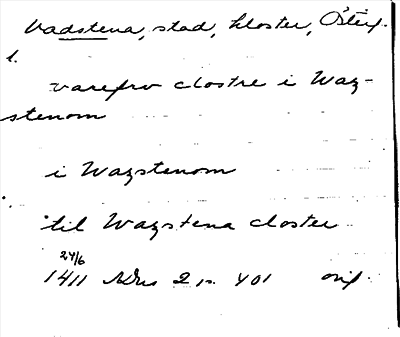 Vadstena, stad, kloster, Österg.
1.
varefrv clostre i Waz-
stenom
i Wazstenom
til Wazstena closter
24/6
1411 SDns 2 s. 401 orig.